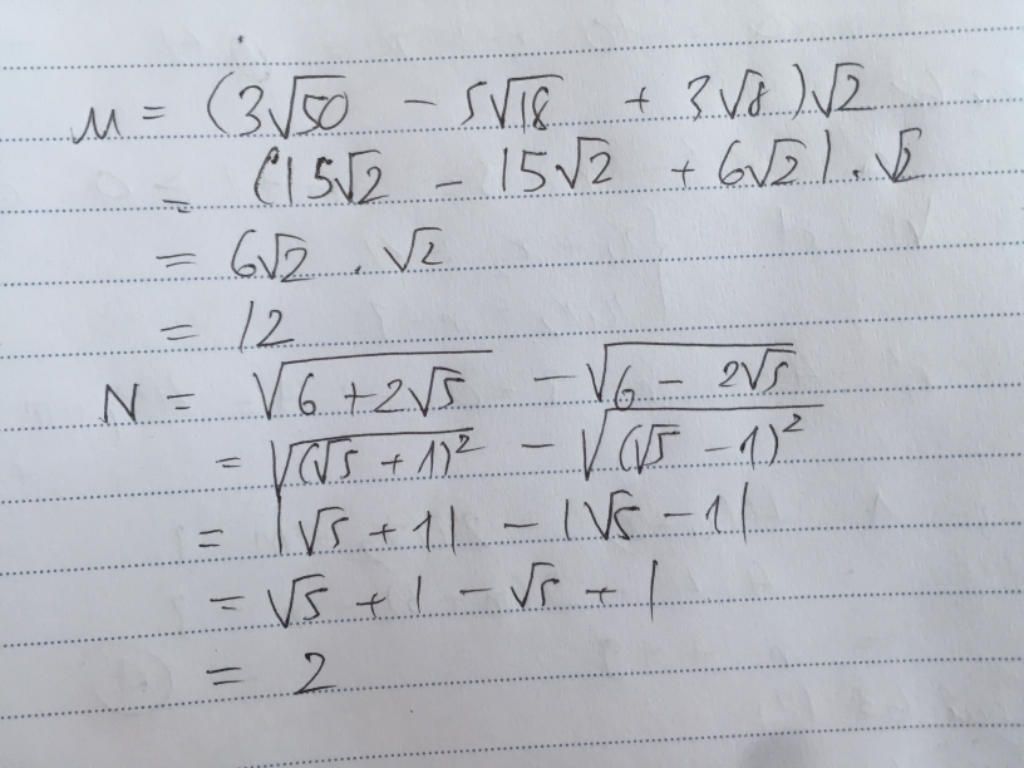 M = (3√50 − 5√18 + 3√8)√2
= (15√2 − 15√2 + 6√2) . √2
= 6√2 . √2
= 12
N = √(6 + 2√5) − √(6 − 2√5)
= √((√5 + 1)²) − √((√5 − 1)²)
= |√5 + 1| − |√5 − 1|
= √5 + 1 − √5 + 1
= 2